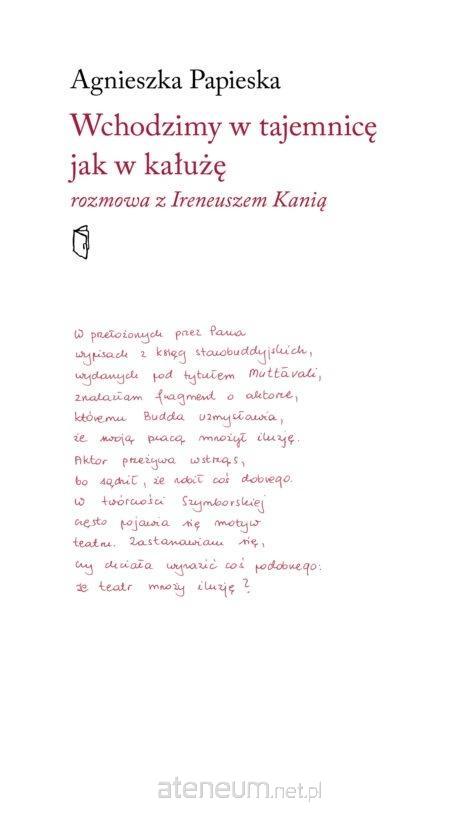 Agnieszka Papieska
Wchodzimy w tajemnicę
jak w kałużę
rozmowa z Ireneuszem Kanią
W przełożonych przez Pana
wypisach z ksiąg starobuddyjskich,
wydanych pod tytułem Muttāvali,
znalazłam fragment o aktorze,
któremu Budda uzmysławia,
że swoją pracą mnożył iluzję.
Aktor przeżywa wstrząs,
bo sądził, że robił coś dobrego.
W twórczości Szymborskiej
często pojawia się motyw
teatru. Zastanawiam się,
czy chciała wyrazić coś podobnego:
że teatr mnoży iluzję?
ateneum.net.pl